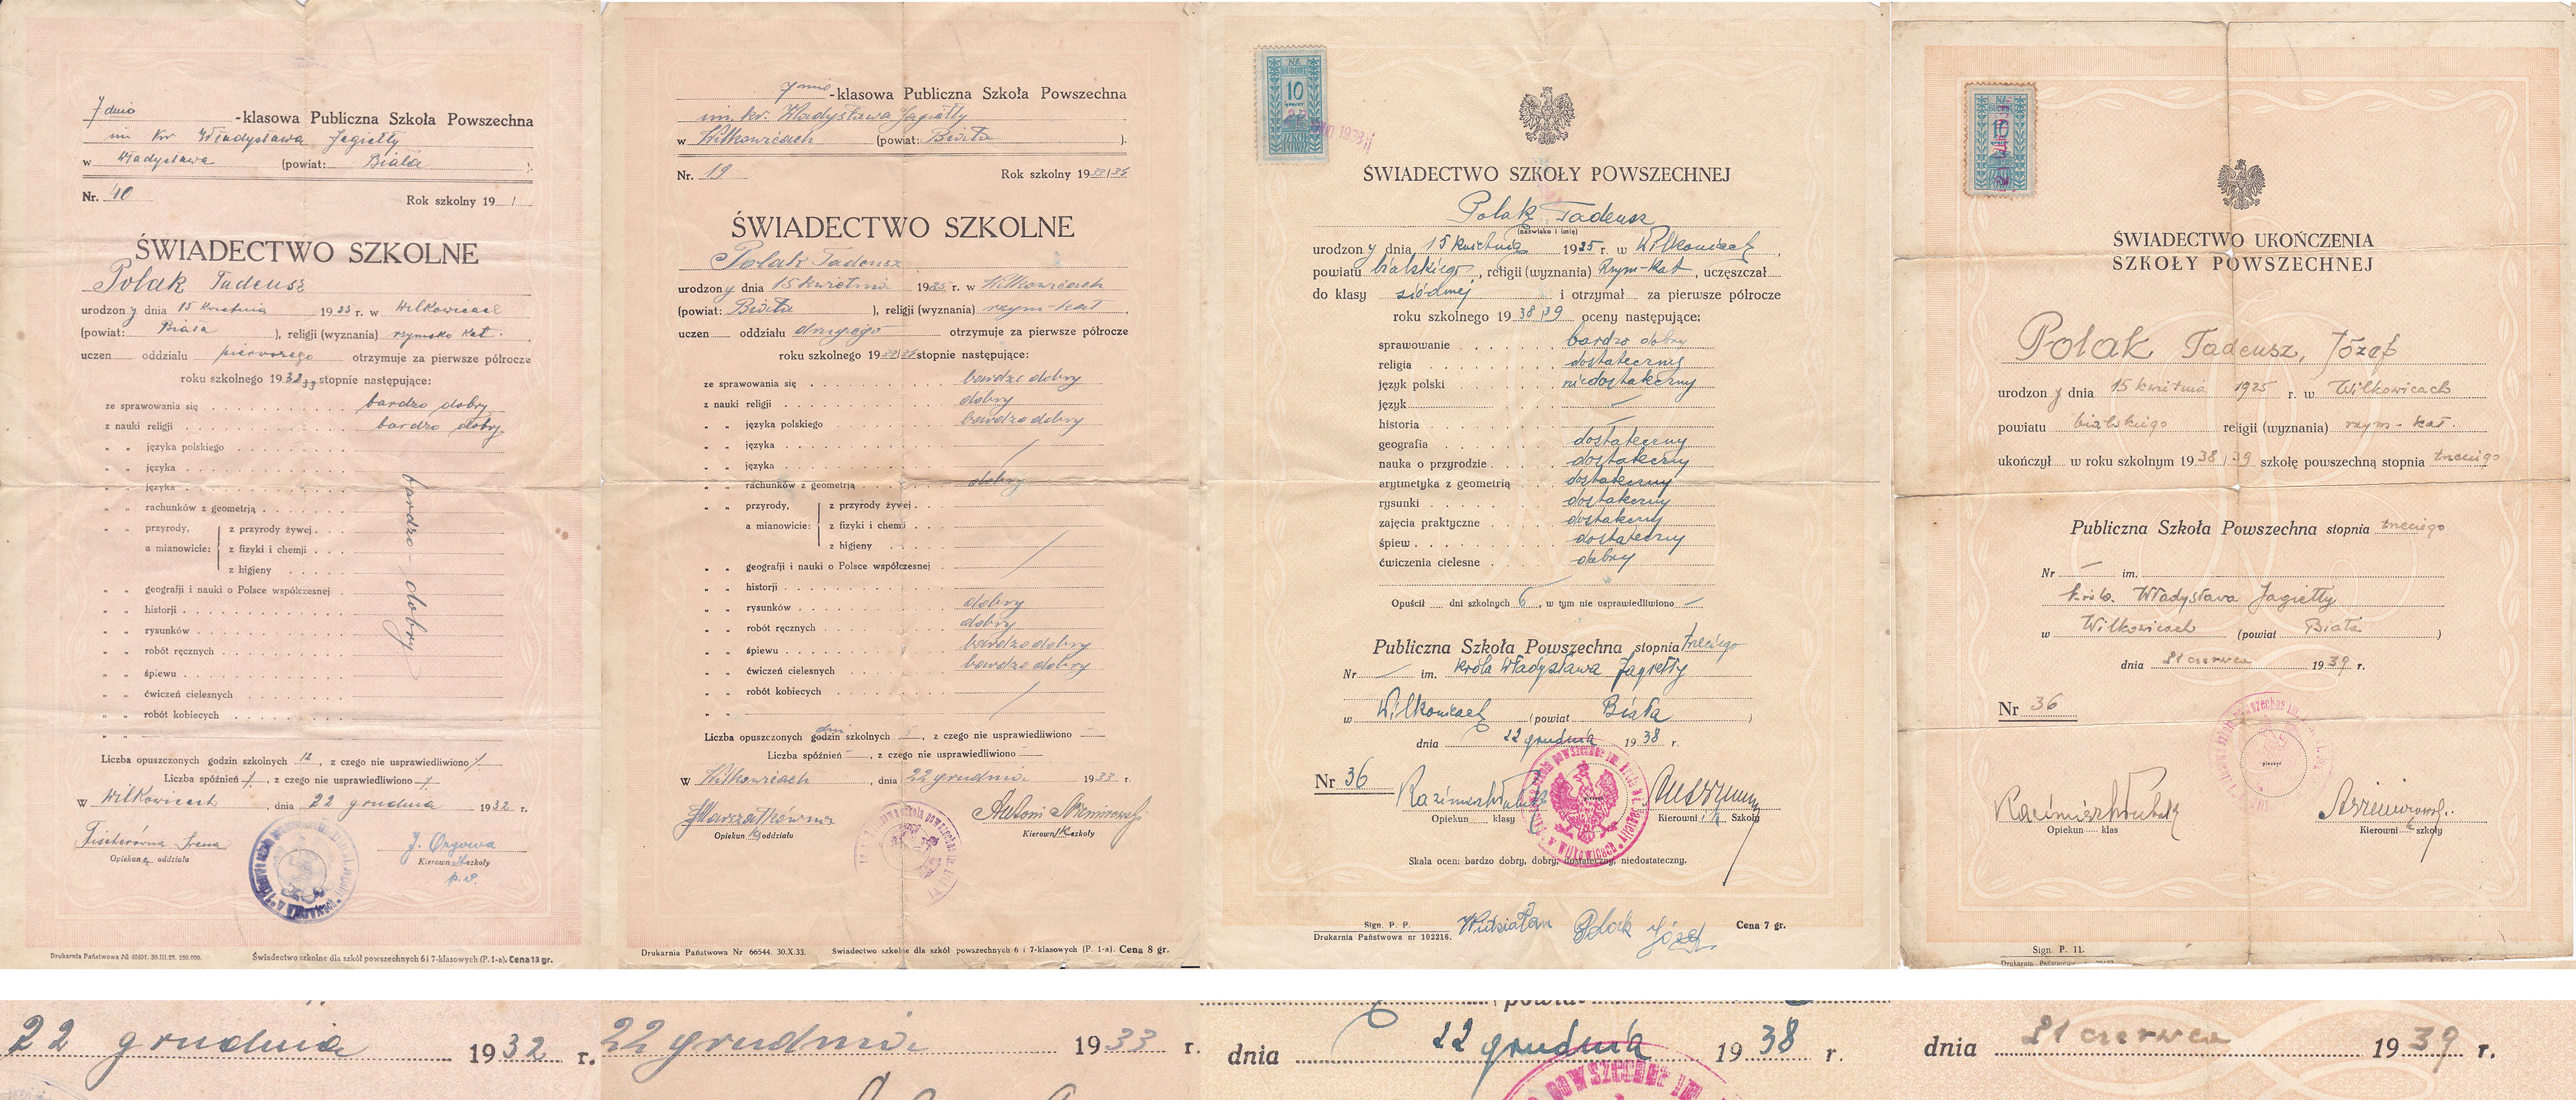 7 dmio -klasowa Publiczna Szkoła Powszechna
im Kr Władysława Jagiełły
w Władysława (powiat: Biała )
Nr. 40 Rok szkolny 19 /
ŚWIADECTWO SZKOLNE
Polak Tadeusz
urodzony dnia 15 kwietnia 1925 r. w Wilkowicach
(powiat: Biała ), religii (wyznania) rzymsko kat.
uczeń oddziału pierwszego otrzymuje za pierwsze półrocze
roku szkolnego 1932/33 stopnie następujące:
ze sprawowania się bardzo dobry
z nauki religii bardzo dobry
„ „ języka polskiego
„ „ języka
„ „ języka
„ „ rachunków z geometrją
„ „ przyrody, z przyrody żywej
a mianowicie: z fizyki i chemji
z higjeny
„ „ geografji i nauki o Polsce współczesnej
„ „ historji
„ „ rysunków
„ „ robót ręcznych
„ „ śpiewu
„ „ ćwiczeń cielesnych
„ „ robót kobiecych
„ „
bardzo dobry
Liczba opuszczonych godzin szkolnych 12, z czego nie usprawiedliwiono /
Liczba spóźnień /, z czego nie usprawiedliwiono /
W Wilkowicach, dnia 22 grudnia 1932 r.
Fischerówna Irena
Opiekun oddziału Kierown szkoły
p.o.
Drukarnia Państwowa Świadectwo szkolne dla szkół powszechnych 6 i 7-klasowych (P. 1-a). Cena 13 gr.
7mio -klasowa Publiczna Szkoła Powszechna
im. kr. Władysława Jagiełły
w Wilkowicach (powiat: Biała ).
Nr. 19 Rok szkolny 1933/34
ŚWIADECTWO SZKOLNE
Polak Tadeusz
urodzony dnia 15 kwietnia 1925 r. w Wilkowicach
(powiat: Biała ), religii (wyznania) rzym-kat
uczeń oddziału drugiego otrzymuje za pierwsze półrocze
roku szkolnego 1933/34 stopnie następujące:
ze sprawowania się bardzo dobry
z nauki religji dobry
„ „ języka polskiego bardzo dobry
„ „ języka /
„ „ języka
„ „ rachunków z geometrją dobry
„ „ przyrody, z przyrody żywej
a mianowicie: z fizyki i chemji
z higjeny /
„ „ geografji i nauki o Polsce współczesnej
„ „ historji
„ „ rysunków dobry
„ „ robót ręcznych dobry
„ „ śpiewu bardzo dobry
„ „ ćwiczeń cielesnych bardzo dobry
„ „ robót kobiecych /
„ „
Liczba opuszczonych godzin dni szkolnych, z czego nie usprawiedliwiono
Liczba spóźnień –, z czego nie usprawiedliwiono
W Wilkowicach, dnia 22 grudnia 1933 r.
Opiekun oddziału Kierown szkoły
Drukarnia Państwowa Nr 66544. 30.X.33. Świadectwo szkolne dla szkół powszechnych 6 i 7-klasowych (P. 1-a). Cena 8 gr.
NA BUDOWĘ
10
GROSZY
ŚWIADECTWO SZKOŁY POWSZECHNEJ
Polak Tadeusz
(nazwisko i imię)
urodzony dnia 15 kwietnia 1925 r. w Wilkowicach,
powiatu bialskiego, religii (wyznania) Rzym-kat, uczęszczał
do klasy siódmej i otrzymał za pierwsze półrocze
roku szkolnego 1938/39 oceny następujące:
sprawowanie bardzo dobry
religia dostateczny
język polski niedostateczny
język –
historia –
geografia dostateczny
nauka o przyrodzie dostateczny
arytmetyka z geometrią dostateczny
rysunki dostateczny
zajęcia praktyczne dostateczny
śpiew dostateczny
ćwiczenia cielesne dobry
Opuścił dni szkolnych 6, w tym nie usprawiedliwiono –
Publiczna Szkoła Powszechna stopnia trzeciego
Nr – im. króla Władysława Jagiełły
w Wilkowicach (powiat Biała )
dnia 22 grudnia 1938 r.
Nr 36
Opiekun klasy Kierowni Szkoły
Skala ocen: bardzo dobry, dobry, dostateczny, niedostateczny.
Sign. P. P.
Drukarnia Państwowa nr 102216. Widziałem Polak Józef Cena 7 gr.
NA
10
ŚWIADECTWO UKOŃCZENIA
SZKOŁY POWSZECHNEJ
Polak Tadeusz, Józef
urodzony dnia 15 kwietnia 1925 r. w Wilkowicach
powiatu bialskiego religii (wyznania) rzym-kat.
ukończył w roku szkolnym 1938/39 szkołę powszechną stopnia trzeciego
Publiczna Szkoła Powszechna stopnia trzeciego
Nr – im.
król. Władysława Jagiełły
w Wilkowicach (powiat Biała )
dnia 21 czerwca 1939 r.
Nr 36
pieczęć
Opiekun klas Kierowni szkoły
Sign. P. 11.
22 grudnia 1932 r.
22 grudnia 1933 r.
dnia 22 grudnia 1938 r.
dnia 21 czerwca 1939 r.